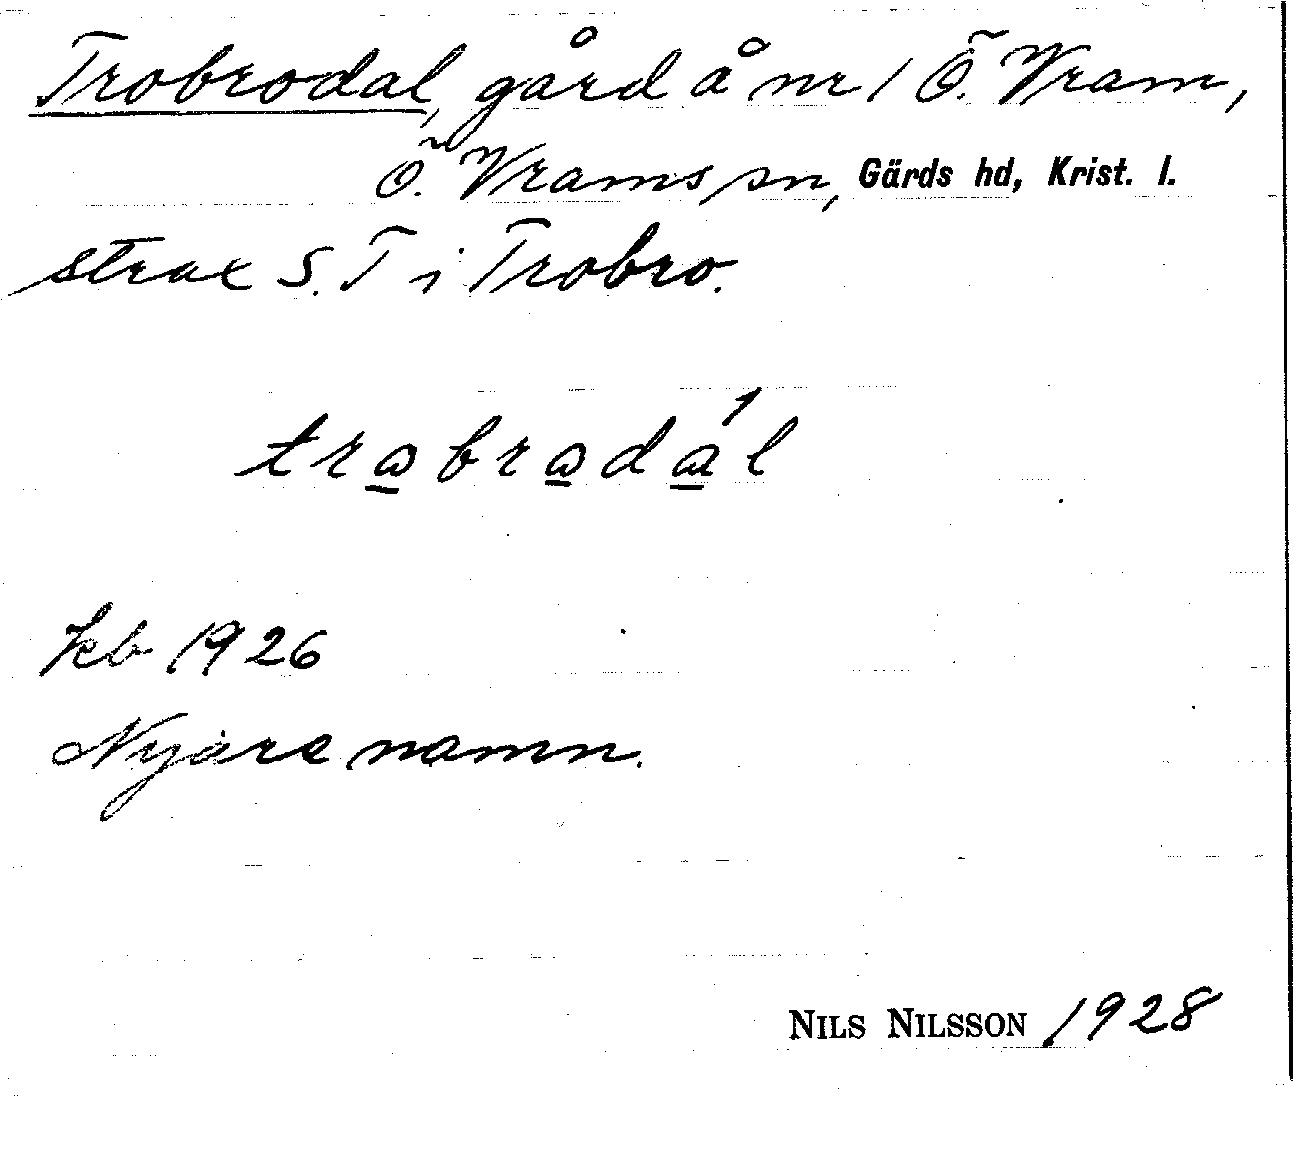 Trobrodal, gård å nr 1 Ö. Vram,
Ö. Vrams sn, Gärds hd, Krist. l.
strax S. T i Trobro.
kb 1926
Nyare namn.
NILS NILSSON 1928